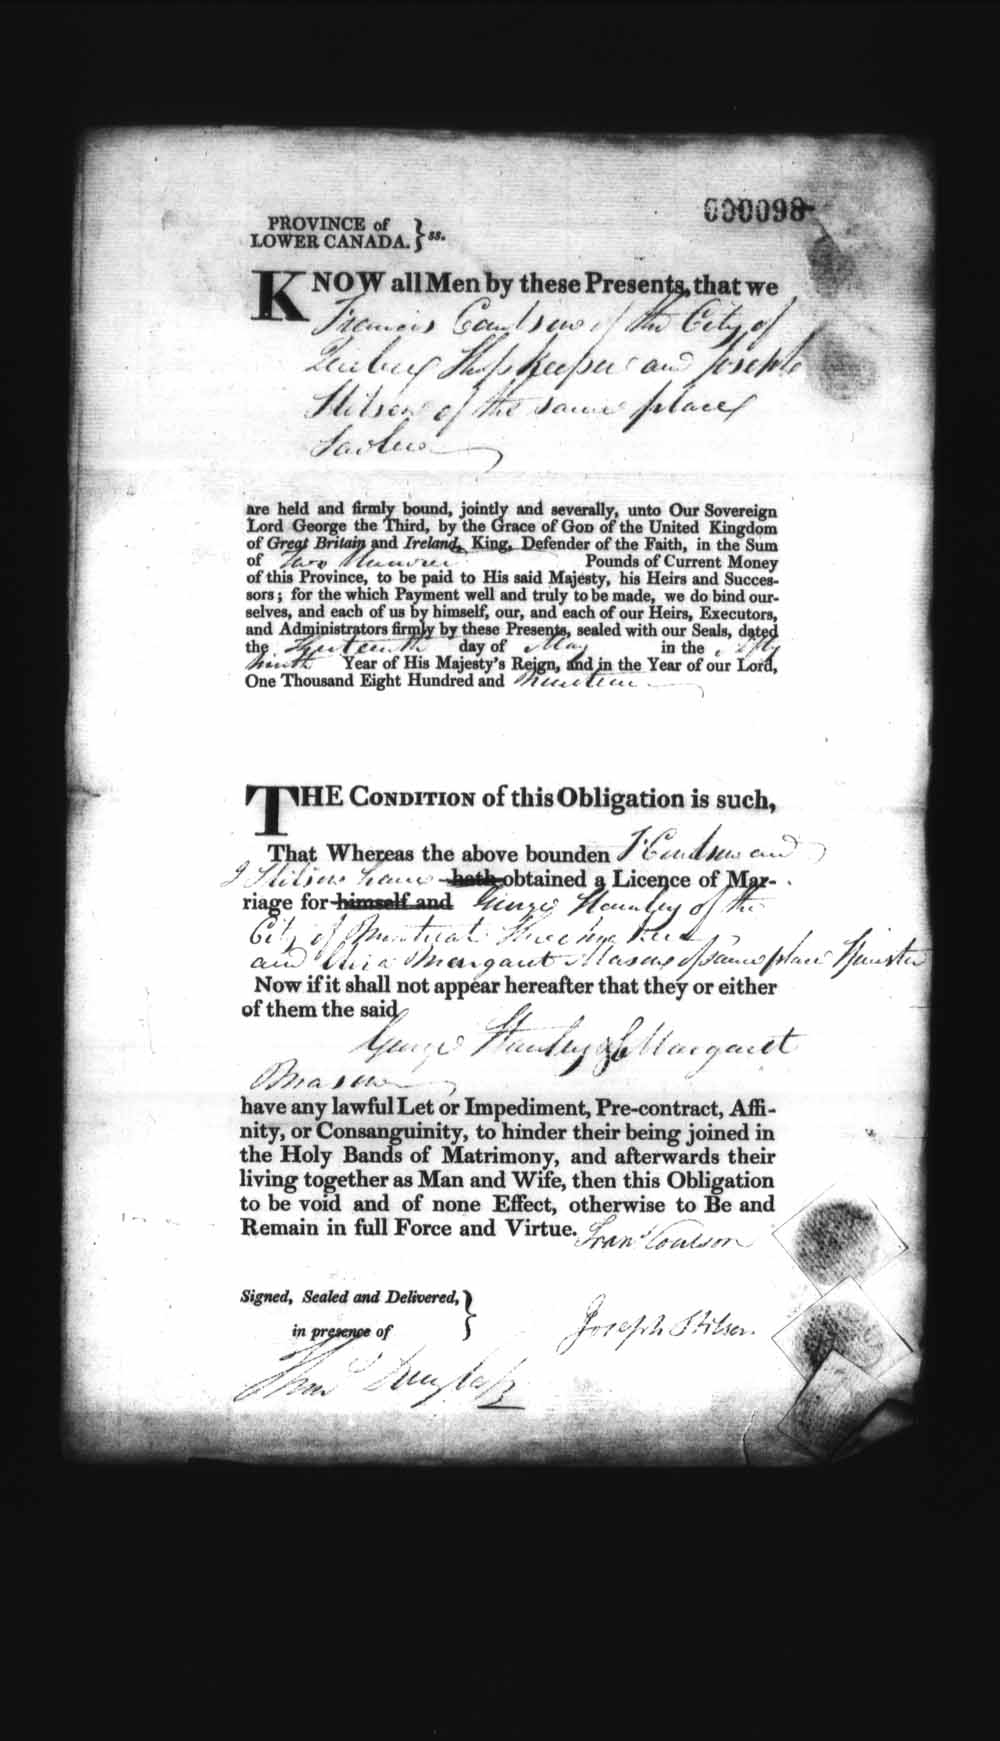 000098
PROVINCE of
LOWER CANADA. } ss.
KNOW all Men by these Presents, that we
Francis Coulson of the City of
Quebec Shopkeeper and Joseph
Stilson of the same place
are held and firmly bound, jointly and severally, unto Our Sovereign
Lord George the Third, by the Grace of GOD of the United Kingdom
of Great Britain and Ireland, King, Defender of the Faith, in the Sum
of Two Hundred Pounds of Current Money
of this Province, to be paid to His said Majesty, his Heirs and Succes-
sors; for the which Payment well and truly to be made, we do bind our-
selves, and each of us by himself, our, and each of our Heirs, Executors,
and Administrators firmly by these Presents, sealed with our Seals, dated
the day of May in the fifty
ninth Year of His Majesty's Reign, and in the Year of our Lord,
One Thousand Eight Hundred and Nineteen
THE CONDITION of this Obligation is such,
That Whereas the above bounden F Coulson and
J Stilson have hath obtained a Licence of Mar-
riage for himself and George Stanley of the
City of Montreal
and Margaret Mason of same place Spinster
Now if it shall not appear hereafter that they or either
of them the said
George Stanley & Margaret
Mason
have any lawful Let or Impediment, Pre-contract, Affi-
nity, or Consanguinity, to hinder their being joined in
the Holy Bands of Matrimony, and afterwards their
living together as Man and Wife, then this Obligation
to be void and of none Effect, otherwise to Be and
Remain in full Force and Virtue.
Frans Coulson
Signed, Sealed and Delivered, }
in presence of
Joseph Stilson.
Thos Douglass